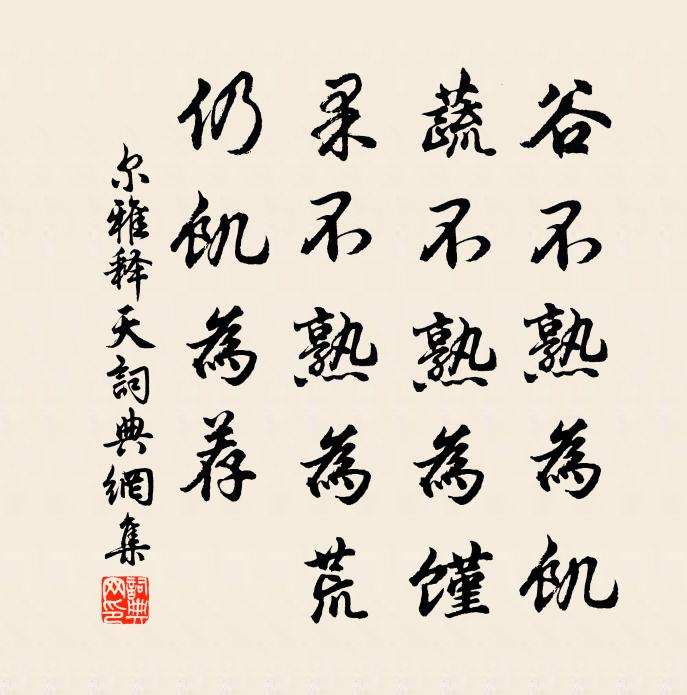 谷不熟為飢
蔬不熟為饉
果不熟為荒
仍飢為荐
尔雅释天詞典網集
詞典網印